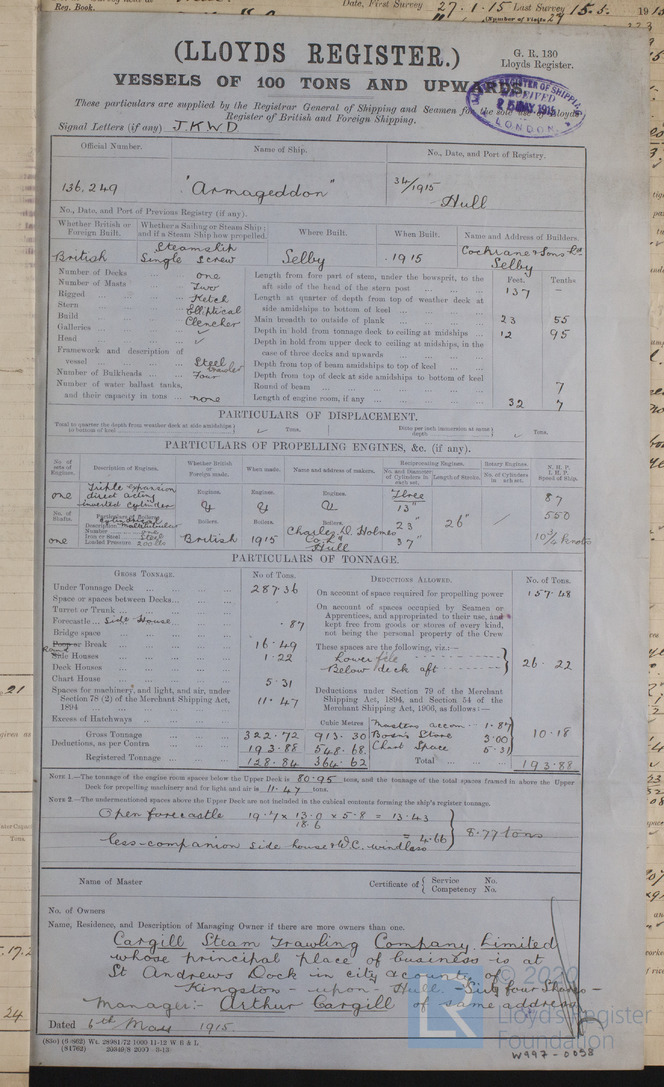 Reg. Book.
Date, First Survey 27.1.15 Last Survey 15.5. 191
(Number of Visits 27
(LLOYDS REGISTER.)
G. R. 130
Lloyds Register.
VESSELS OF 100 TONS AND UPWARDS
These particulars are supplied by the Registrar General of Shipping and Seamen for the sole use of Lloyds
Register of British and Foreign Shipping.
REGISTER OF SHIPPING
RECEIVED
25 MAY. 1915
LONDON.
Signal Letters (if any) J.K.W.D
Official Number.
Name of Ship.
No., Date, and Port of Registry.
136,249
"Armageddon"
34/1915
Hull
No., Date, and Port of Previous Registry (if any).
Whether British or Foreign Built.
Whether a Sailing or Steam Ship; and if a Steam Ship how propelled.
Where Built.
When Built.
Name and Address of Builders.
British
Steamship Single Screw
Selby
1915
Cochrane & Sons Ld. Selby
Number of Decks ... one
Number of Masts ... Two
Rigged ... Ketch
Stern ... Elliptical
Build ... Clencher
Galleries ... ✓
Head ... ✓
Framework and description of vessel ... Steel trawler
Number of Bulkheads ... Four
Number of water ballast tanks, and their capacity in tons ... none
Feet. Tenths
Length from fore part of stem, under the bowsprit, to the aft side of the head of the stern post ... 137 –
Length at quarter of depth from top of weather deck at side amidships to bottom of keel ...
Main breadth to outside of plank ... 23 55
Depth in hold from tonnage deck to ceiling at midships ... 12 95
Depth in hold from upper deck to ceiling at midships, in the case of three decks and upwards ...
Depth from top of beam amidships to top of keel ...
Depth from top of deck at side amidships to bottom of keel
Round of beam ... 7
Length of engine room, if any ... 32 7
PARTICULARS OF DISPLACEMENT.
Total to quarter the depth from weather deck at side amidships to bottom of keel ✓ Tons.
Ditto per inch immersion at same depth ✓ Tons.
PARTICULARS OF PROPELLING ENGINES, &c. (if any).
No. of sets of Engines.
Description of Engines.
Whether British or Foreign made.
When made.
Name and address of makers.
Reciprocating Engines.
No. and Diameter of Cylinders in each set.
Length of Stroke.
Rotary Engines.
No. of Cylinders in each set.
N. H. P.
I. H. P.
Speed of Ship.
one
Triple expansion direct acting inverted cylinder
Engines.
Engines.
Engines.
Three
13"
23"
37"
26"
/
87
550
10¾ knots
No. of Shafts.
one
Particulars of Boilers.
Description
Number one
Iron or Steel Steel
Loaded Pressure 200 lbs
Boilers.
British
Boilers.
1915
Boilers.
Charles D. Holmes & Co. Ld Hull
PARTICULARS OF TONNAGE.
GROSS TONNAGE.
No of Tons.
DEDUCTIONS ALLOWED.
No. of Tons.
Under Tonnage Deck ... 287.36
Space or spaces between Decks...
Turret or Trunk ...
Forecastle... Side House ... .87
Bridge space
Poop or Break ... 16.49
Side Houses ... 1.22
Deck Houses ...
Chart House ... 5.31
Spaces for machinery, and light, and air, under Section 78 (2) of the Merchant Shipping Act, 1894 ... 11.47
Excess of Hatchways ...
On account of space required for propelling power 157.48
On account of spaces occupied by Seamen or Apprentices, and appropriated to their use, and kept free from goods or stores of every kind, not being the personal property of the Crew
These spaces are the following, viz.:—
Lower f'c'le
Below deck aft
26.22
Deductions under Section 79 of the Merchant Shipping Act, 1894, and Section 54 of the Merchant Shipping Act, 1906, as follows:—
Cubic Metres
Masters accom. 1.87
Bosn's Store 3.00
Chart Space 5.31
10.18
Gross Tonnage 322.72 913.30
Deductions, as per Contra 193.88 548.68
Registered Tonnage 128.84 364.62
Total ... 193.88
NOTE 1.—The tonnage of the engine room spaces below the Upper Deck is 80.95 tons, and the tonnage of the total spaces framed in above the Upper
Deck for propelling machinery and for light and air is 11.47 tons.
NOTE 2.—The undermentioned spaces above the Upper Deck are not included in the cubical contents forming the ship's register tonnage.
Open forecastle 19.7 x 13.0 x 5.8 = 13.43
18.6
less companion side house & W.C. windlass = 4.66
8.77 tons
Name of Master
Certificate of { Service No.
Competency No.
No. of Owners
Name, Residence, and Description of Managing Owner if there are more owners than one.
Cargill Steam Trawling Company Limited
whose principal place of business is at
St Andrews Dock in city & county of
Kingston - upon - Hull. - Sixty four Shares -
Manager:- Arthur Cargill of same address
Dated 6th May 1915.
W997-0058
© 2020
LR
Lloyd's Register
Foundation